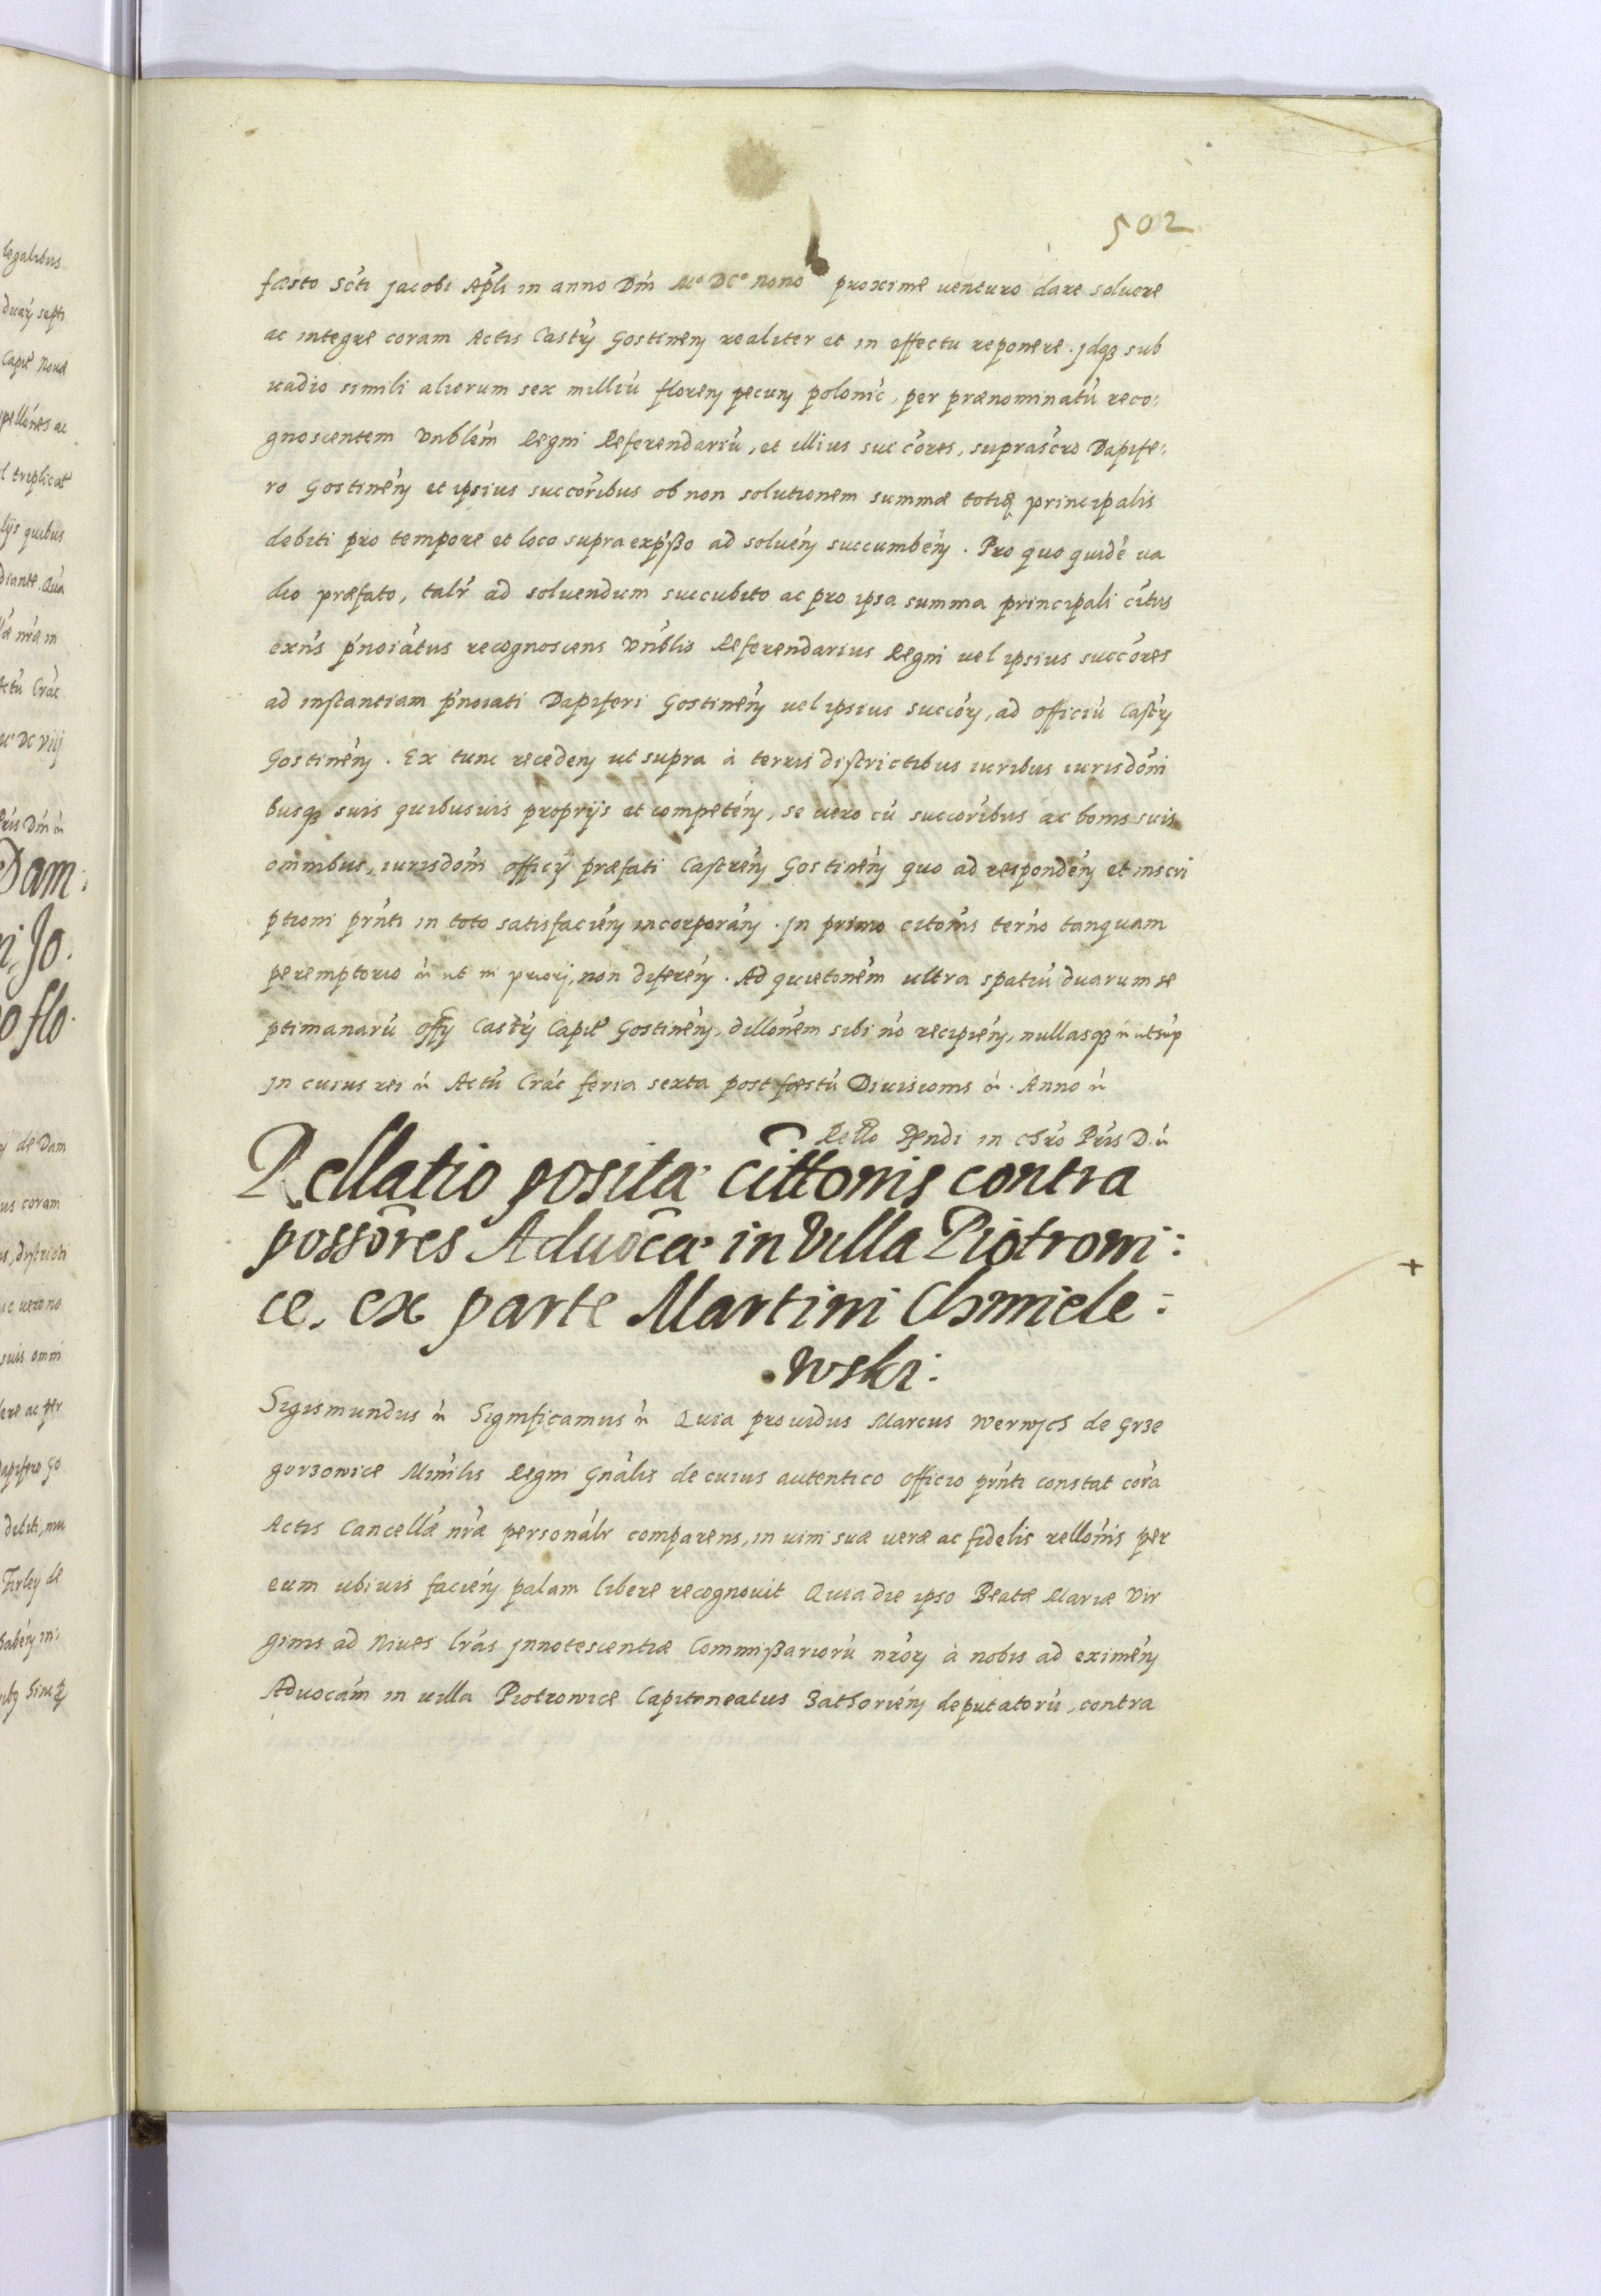 502
fæsto Scti Jacobi Apli in anno Dni Mo DCo nono proxime venturo dare soluere
ac integre coram Actis Castr Gostinen realiter et in effectu reponere. Jdq sub
uadio simili aliorum sex milliu floren pecun polonic, per prænominatu reco:
gnoscentem Vnblem Regni Referendariu, et illius succores, suprascro Dapife:
ro Gostinen et ipsius succoribus ob non solutionem summæ totiq principalis
debiti pro tempore et loco supra expßo ad soluen succumben. Pro quo quide va
dio præfato, talr ad soluendum succubito ac pro ipsa summa principali citus
exns pnoiatus recognoscens Vnblis Referendarius Regni uel ipsius succores
ad instantiam pnoiati Dapiferi Gostinen uel ipsius succor, ad officiu Castr
Gostinen. Ex tunc receden ut supra à terris districtibus iuribus iurisdoni
busq suis quibusuis proprijs et competen, se uero cu succoribus ac bonis suis
omnibus, iurisdom officij præfati Castren Gostinen quo ad responden et inscri
ptioni prnti in toto satisfacien incorporan. Jn primo citonis terno tanquam
peremptorio ut in priorj, non diferen. Ad quietonem ultra spatiu duarum se
ptimanaru offy Castr Capit Gostinen, dillonem sibi no recipien, nullasq ut sup
Jn cuius rei Actu Crac feria sexta post fæstu Diuisionis. Anno
Rello Rndi in Chro Pris D.
Rellatio posita cittonis contra
possores Aduoca in Villa Piotrowi:
ce, ex parte Martini Chmiele:
wski:
Sigismundus Significamus Quia prouidus Marcus Werwych de Grze
gorzowice Minilis Regni Gnalis de cuius autentico officio prnti constat cora
Actis Cancellæ nræ personalr comparens, in uim suæ ueræ ac fidelis rellonis per
eum ubiuis facien palam libere recognouit Quia die ipso Beatæ Mariæ Vir
ginis ad Niues lras Jnnotescentiæ Commißarioru nror à nobis ad eximen
Aduocam in uilla Piotrowice Capitaneatus Zathorien deputatoru, contra